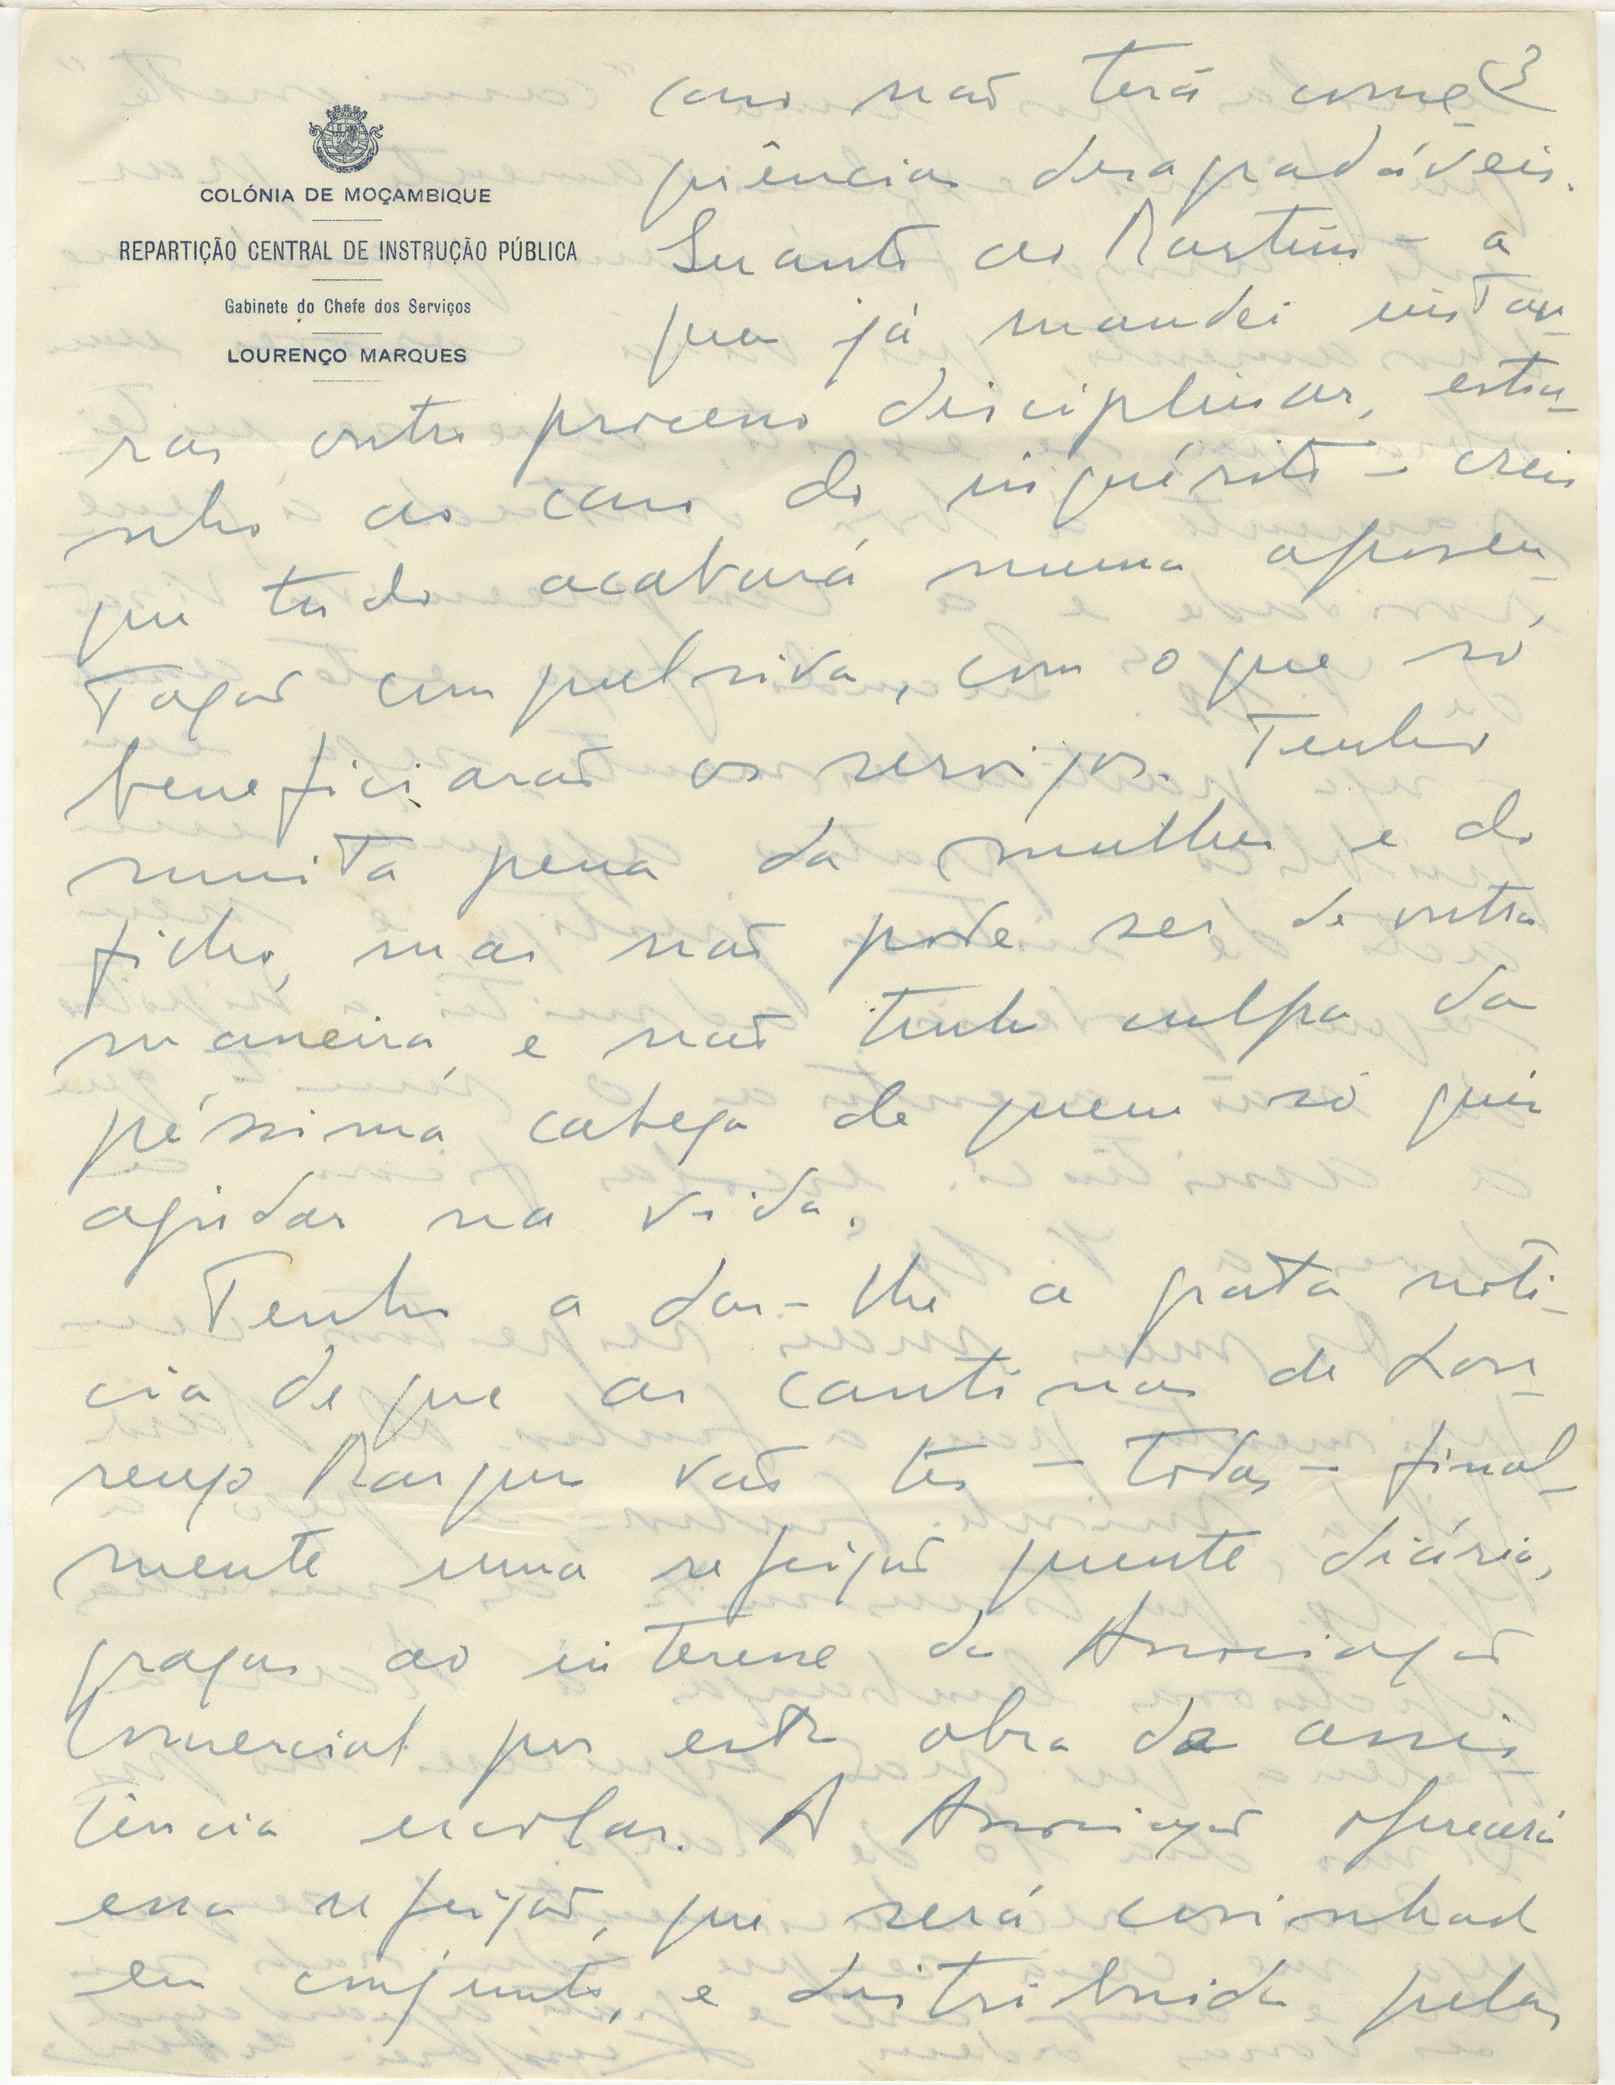 3
COLÓNIA DE MOÇAMBIQUE
REPARTIÇÃO CENTRAL DE INSTRUÇÃO PÚBLICA
Gabinete do Chefe dos Serviços
LOURENÇO MARQUES
caso não terá conse-
quências desagradáveis.
Quanto ao Martins – a
quem já mandei instau-
rar outro processo disciplinar, estra-
nho ao caso do inquérito – creio
que tudo acabará numa aposen-
tação compulsiva, com o que só
beneficiarão os serviços. Tenho
muita pena da mulher e do
filho, mas não pode ser de outra
maneira, e não tenho culpa da
péssima cabeça de quem só quis
ajudar na vida.
Tenho a dar-lhe a grata notí-
cia de que as cantinas de Lou-
renço Marques vão ter – todas – final-
mente uma refeição quente diária,
graças ao interesse da Associação
Comercial por esta obra de assis-
tência escolar. A Associação oferecerá
essa refeição, que será cosinhad
em conjunto, e distribuida pelas